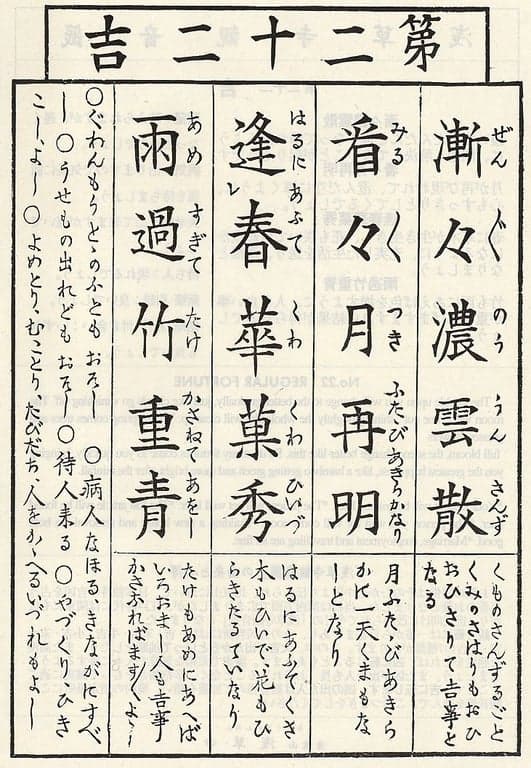 第二十二吉
漸々濃雲散
ぜん〲のううんさんず
くものさんずるごと
くみのさはりもおひ
おひさつて吉事と
なる
看々月再明
みる〱つきふたゝびあきらかなり
月ふたゝびあきら
かに一天くまもな
きなり
逢レ春華菓秀
はるにあふてくわくわひいで
はるにあふてくさ
木もひいで花もひ
らきたるていなり
雨過竹重青
あめすぎてたけかさねてあをし
たけもあめにあへば
いろおます 人も吉事
かさぶればます〱よし
○ぐわんもうとゝのふとも おそし ○病人なほるべきながにすべ
し ○うせもの出れども おそし ○待人来る ○やづくりひき
こしよし ○よめとり むことり たびだち 人をかゝへるいづれもよし